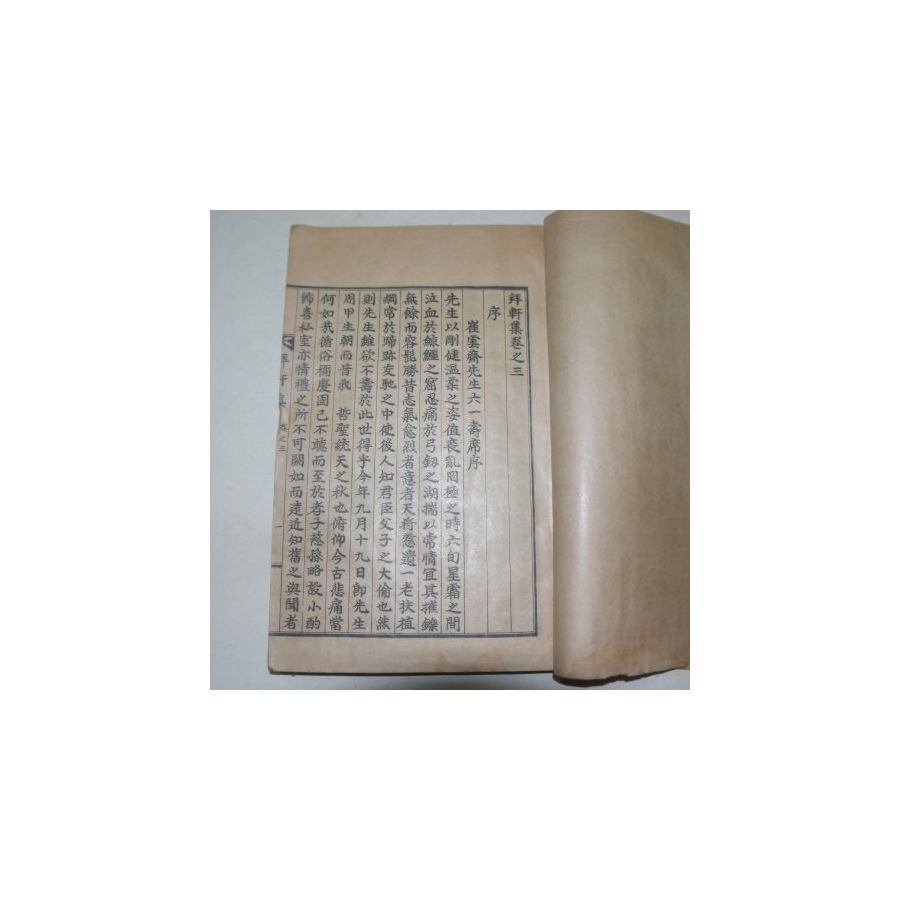 軒集卷之三
序
崔雲齋先生六一壽席序
先生以剛健溫柔之姿值喪亂罔極之時六旬星霜之間
泣血於鯨鱷之窟忍痛於弓劒之湖揣以常情宜其摧鑠
無餘而容髭勝昔志氣愈烈者意者天將憖遺一老扶植
綱常於蹄跡交馳之中使後人知君臣父子之大倫也然
則先生雖欲不壽於此世得乎今年九月十九日卽先生
周甲生朝而昔我 哲聖統天之秋也俯仰今古悲痛當
何如哉循俗稱慶固已不聽而至於孝子慈孫略設小酌
飾喜私室亦情禮之所不可闕如而遠近知舊之與聞者
軒集 卷之三 一